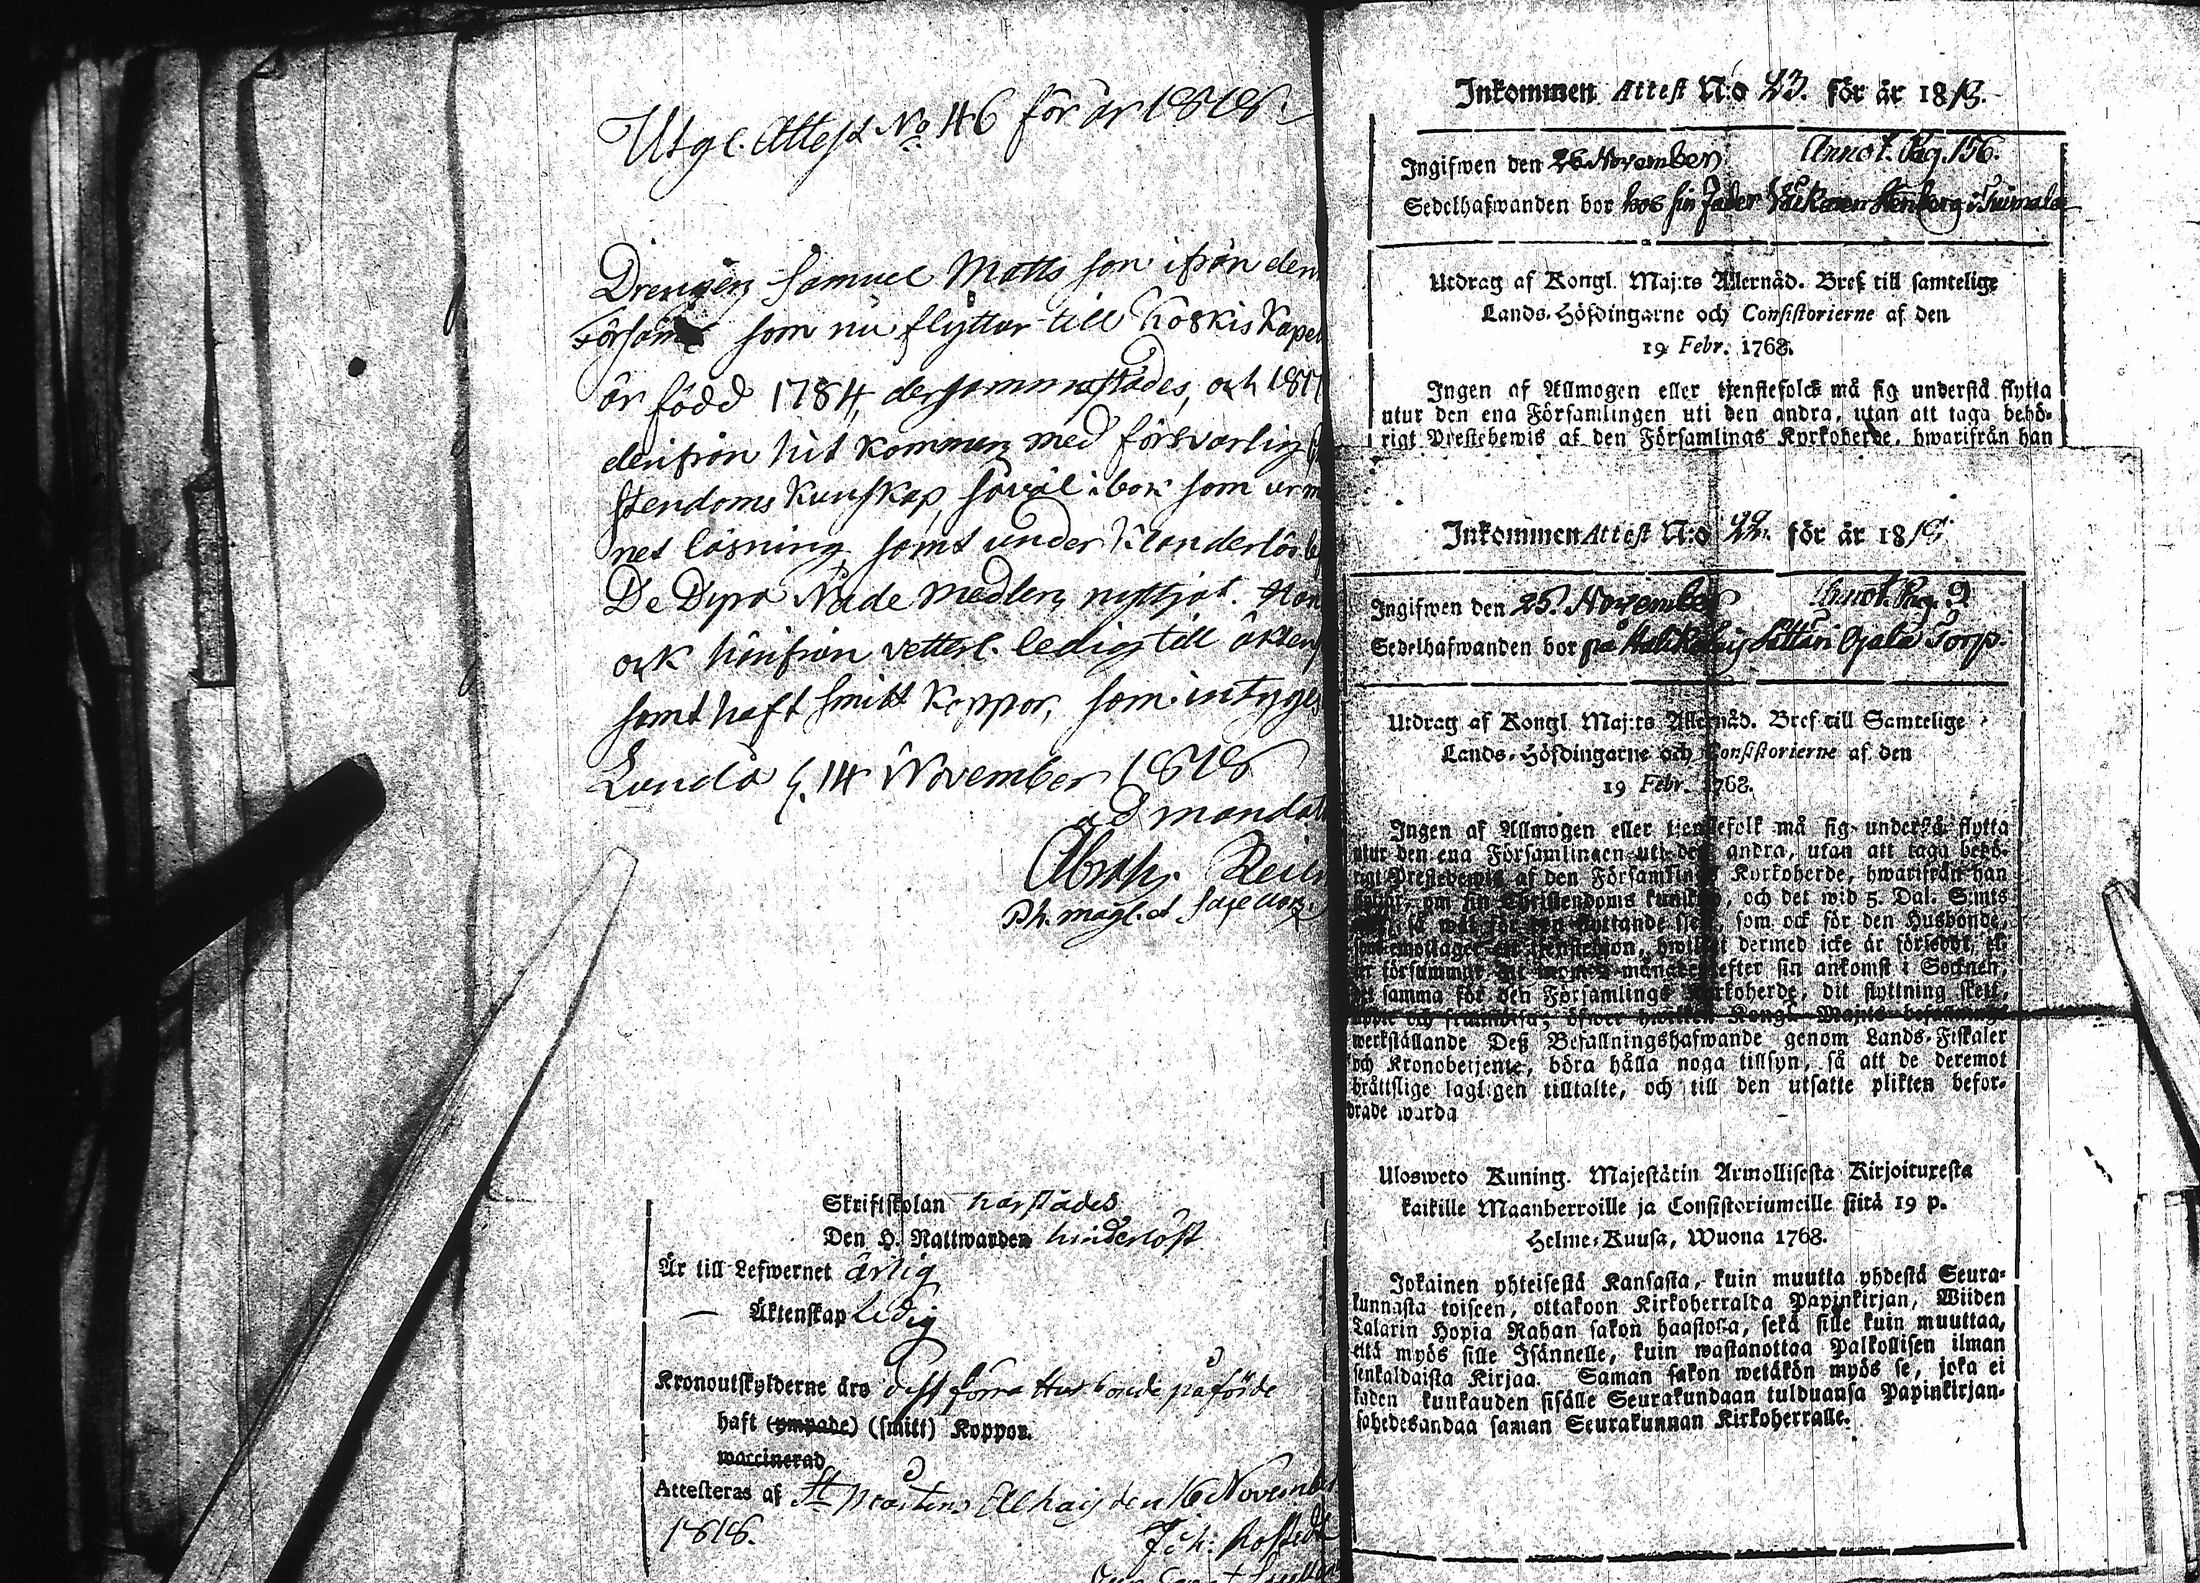 Utgl. Attest No 46 för år 1818.
Drengen Samuel Matts son ifrån denna
Församl som nu flyttar till Koskis Kapel
är född 1784, dersammastädes, och 1817
derifrån hit kommen med försvarlig
stendoms Kunskap, såväl i bok som ur m
net läsning, samt under Klanderlös be
De Dyra Nåde medlen nyttjat. Han
ock härifrån vetterl. ledig till äktens
samt haft smitt Koppor, som intyges
Lundo d. 14 November 1818
ad mandat
Abrah. Rein
Ph. mag. et
Skriftskolan härstädes
Den H. Nattwarden hinderlöst
Är till Lefwernet ärlig
— Äktenskap ledig
Kronoutskylderne äro dess förra Husbonde påförde
haft (ympade) (smitt) Koppor.
waccinerad
Attesteras af St Mårtens den 16 November
1818.
Joh:
Inkommen Attest N:o 23. för år 1818.
Ingifwen den 26 November Annot. Pag. 156.
Sedelhafwanden bor hos sin Fader Stenberg i
Utdrag af Kongl. Maj:ts Allernåd. Bref till samtelige
Lands-Höfdingarne och Consistorierne af den
19 Febr. 1768.
Ingen af Allmogen eller tjenstefolck må sig understå flytta
utur den ena Församlingen uti den andra, utan att taga behö-
rigt Prestebewis af den Församlings Kyrkoherde, hwarifrån han
Inkommen Attest N:o 22. för år 181
Ingifwen den 25. November Annot. Pag. 9
Sedelhafwanden bor på Torp
Utdrag af Kongl. Maj:ts Allernåd. Bref till Samtelige
Lands-Höfdingarne och Consistorierne af den
19 Febr. 1768.
Ingen af Allmogen eller tjenstefolk må sig understå flytta
utur den ena Församlingen uti den andra, utan att taga behö-
rigt Prestebewis af den Församlings Kyrkoherde, hwarifrån han
flyttat, om sin Christendoms kunskap, och det wid 5. Dal. S:mts
flyttande som ock för den Husbonde,
som emottager hwilket dermed icke är försedd, el-
ler försummar månader efter sin ankomst i Socknen,
samma för den Församlings Kyrkoherde, dit flyttning skett,
öfwer hwilket Kongl. Maj:ts
werkställande Deß Befallningshafwande genom Lands-Fiskaler
och Kronobetjente, böra hålla noga tillsyn, så att de deremot
bråttslige lagligen tilltalte, och till den utsatte plikten befor-
drade warda
Ulosweto Kuning. Majestätin Armollisesta Kirjoituxesta
kaikille Maanherroille ja Consistoriumeille siitä 19 p.
Helme-Kuusa, Wuona 1768.
Jokainen yhteisestä Kansasta, kuin muutta yhdestä Seura-
kunnasta toiseen, ottakoon Kirkoherralda Papinkirjan, Wiiden
Talarin Hopia Rahan sakon haastossa, sekä sille kuin muuttaa,
että myös sille Isännelle, kuin wastanottaa Palkollisen ilman
senkaldaista Kirjaa. Saman sakon wetäkön myös se, joka ei
kahden kuukauden sisälle Seurakundaan tulduansa Papinkirjan-
sa saman Seurakunnan Kirkoherralle.